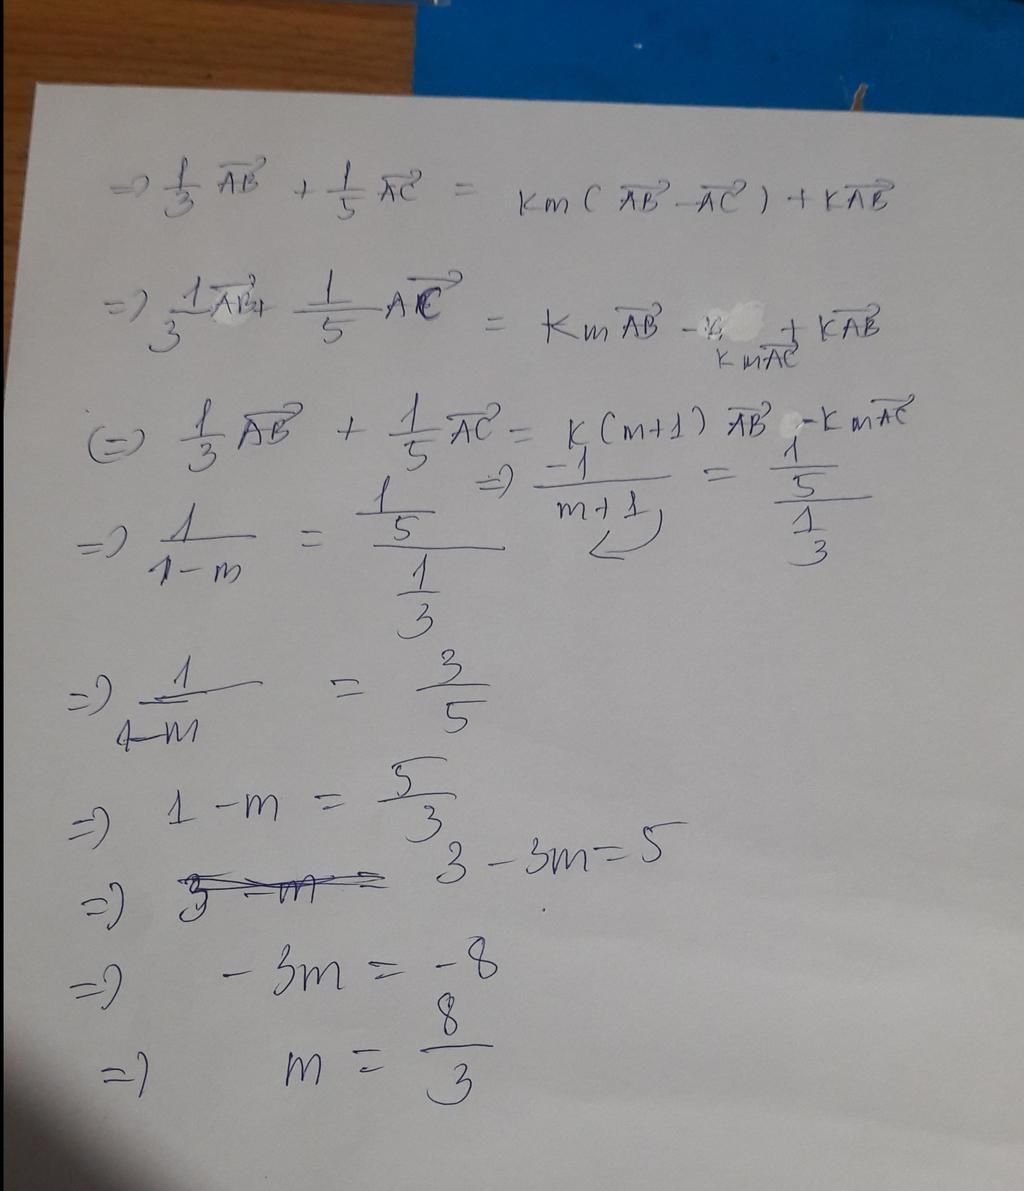 => 1/3 AB⃗ + 1/5 AC⃗ = km( AB⃗ - AC⃗ ) + kAB⃗
=> 1/3 AB⃗ + 1/5 AC⃗ = kmAB⃗ - kmAC⃗ + kAB⃗
(=) 1/3 AB⃗ + 1/5 AC⃗ = k(m+1) AB⃗ - kmAC⃗
=> -1/(m+1) = (1/5)/(1/3)
=> 1/(1-m) = (1/5)/(1/3)
=> 1/(1-m) = 3/5
=> 1 - m = 5/3
=> 3 - 3m = 5
=> - 3m = - 8
=> m = 8/3